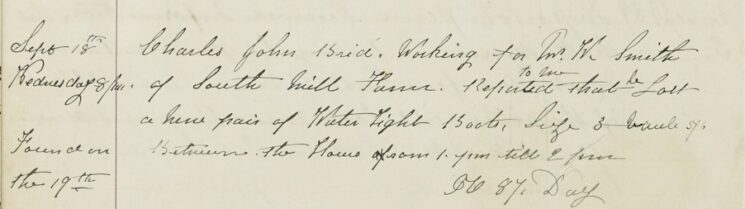 Sept 18th
Wednesday 8 pm.
Found on
the 19th
Charles John Brid. Working for Mr. W. Smith
of South Mill Farm. Reported to me that he Lost
a new pair of Water Tight Boots, Size 8 Value
Between the Hours from 1. pm till 2 pm
PC 87. Day